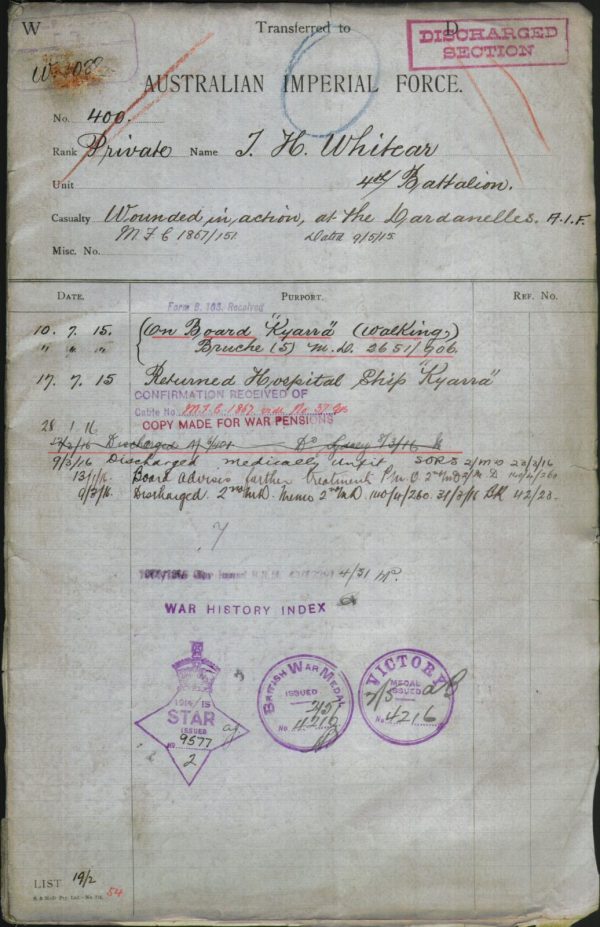 W Transferred to D
DISCHARGED
SECTION
AUSTRALIAN IMPERIAL FORCE.
No. 400.
Rank Private Name T. H. Whitear
Unit 4th/ Battalion.
Casualty Wounded in action, at the Dardanelles. A.I.F.
M.F.C 1867/151 Dated 9/5/15
Misc. No.
DATE. PURPORT. REF. NO.
Form B. 103. Received
10. 7. 15. (On Board "Kyarra" (Walking,)
" " " Bruche (S) M.D. 2651/906.
17. 7. 15 Returned Hospital Ship "Kyarra"
CONFIRMATION RECEIVED OF
Cable No. M.F.C. 1867
COPY MADE FOR WAR PENSIONS
28 1 16
Discharged
9/3/16 Discharged medically unfit 2/MD 23/3/16
13/1/16 Board advises further treatment P.M.O. 2nd MD
9/3/16. Discharged. 2nd M.D. Memo 2nd M.D. 140/4/260. 31/3/16 42/23.
7
4/31
WAR HISTORY INDEX
1914/15
STAR
ISSUED
No 9577
2
BRITISH WAR MEDAL
ISSUED
No. 4216
VICTORY
MEDAL
ISSUED
No. 4216
LIST 19/2
54